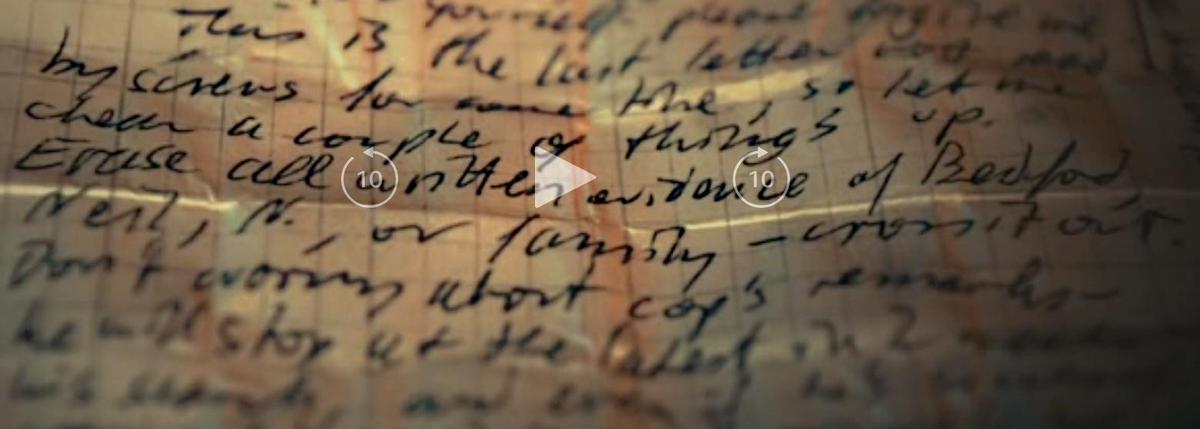 yourself, please forgive me
This is the last letter
by screws for some time, so let me
clear a couple of things up.
Erase all written evidence of Bedford,
Neil, N., or family – cross it out.
Don't worry about cop's remarks –
he will stop at the latest in 2
and
10
10